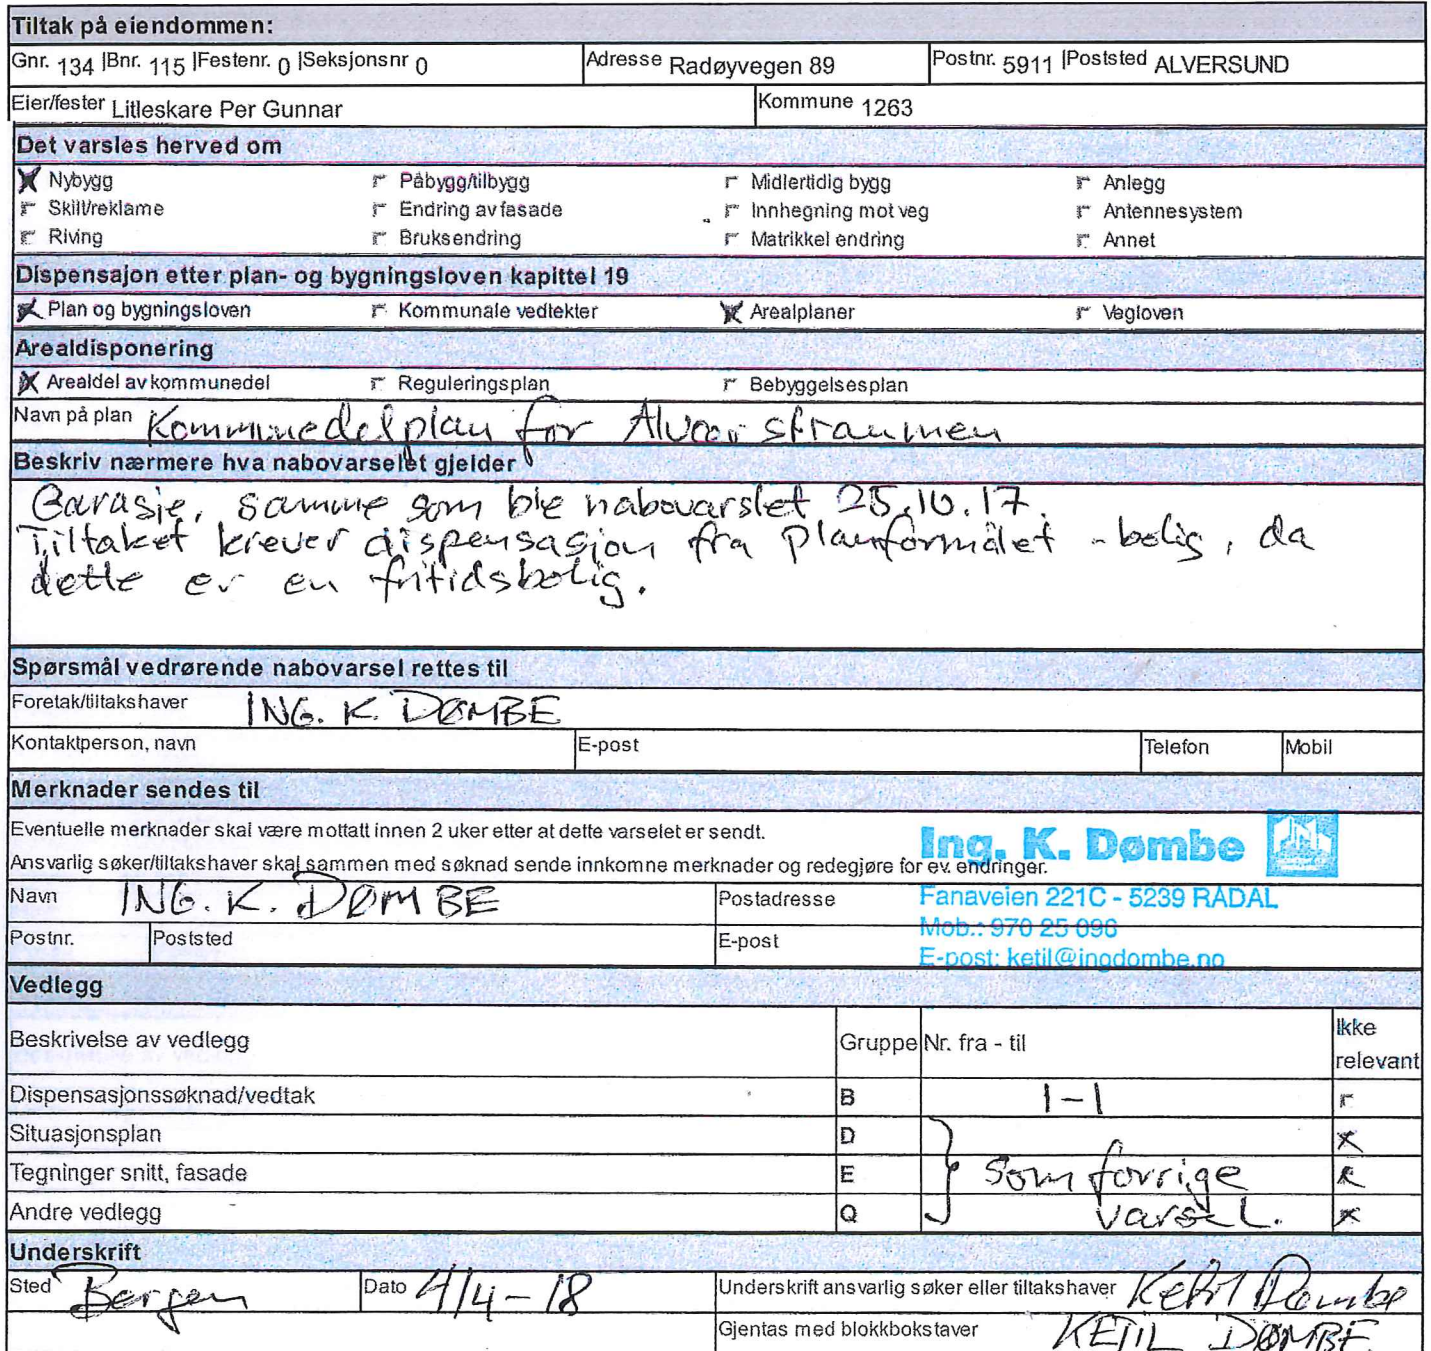 Tiltak på eiendommen:
Gnr. 134 |Bnr. 115 |Festenr. 0 |Seksjonsnr 0 Adresse Radøyvegen 89 Postnr. 5911 |Poststed ALVERSUND
Eier/fester Litleskare Per Gunnar Kommune 1263
Det varsles herved om
Nybygg Påbygg/tilbygg Midlertidig bygg Anlegg
Skilt/reklame Endring av fasade Innhegning mot veg Antennesystem
Riving Bruksendring Matrikkel endring Annet
Dispensajon etter plan- og bygningsloven kapittel 19
Plan og bygningsloven Kommunale vedtekter Arealplaner Vegloven
Arealdisponering
Arealdel av kommunedel Reguleringsplan Bebyggelsesplan
Navn på plan Kommunedelplan for Alverstraumen
Beskriv nærmere hva nabovarselet gjelder
Garasje, samme som ble nabovarslet 25.10.17.
Tiltaket krever dispensasjon fra planformålet - bolig, da
dette er en fritidsbolig.
Spørsmål vedrørende nabovarsel rettes til
Foretak/tiltakshaver ING. K. DØMBE
Kontaktperson, navn E-post Telefon Mobil
Merknader sendes til
Eventuelle merknader skal være mottatt innen 2 uker etter at dette varselet er sendt.
Ing. K. Dømbe
Ansvarlig søker/tiltakshaver skal sammen med søknad sende innkomne merknader og redegjøre for ev. endringer.
Navn ING. K. DØMBE Postadresse Fanaveien 221C - 5239 RÅDAL
Mob.: 970 25 096
Postnr. Poststed E-post E-post: ketil@ingdombe.no
Vedlegg
Beskrivelse av vedlegg Gruppe Nr. fra - til Ikke relevant
Dispensasjonssøknad/vedtak B 1-1
Situasjonsplan D
Tegninger snitt, fasade E som forrige
Andre vedlegg Q varsel.
Underskrift
Sted Bergen Dato 4/4-18 Underskrift ansvarlig søker eller tiltakshaver Ketil Dømbe
Gjentas med blokkbokstaver KETIL DØMBE